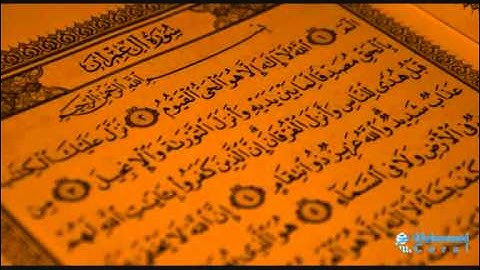 سُورَةُ آلِ عِمْرَانَ
بِسْمِ ٱللَّهِ ٱلرَّحْمَٰنِ ٱلرَّحِيمِ
الٓمٓ ١ ٱللَّهُ لَآ إِلَٰهَ إِلَّا هُوَ ٱلْحَىُّ ٱلْقَيُّومُ ٢ نَزَّلَ عَلَيْكَ ٱلْكِتَٰبَ
بِٱلْحَقِّ مُصَدِّقًا لِّمَا بَيْنَ يَدَيْهِ وَأَنزَلَ ٱلتَّوْرَىٰةَ وَٱلْإِنجِيلَ ٣ مِن
قَبْلُ هُدًى لِّلنَّاسِ وَأَنزَلَ ٱلْفُرْقَانَ إِنَّ ٱلَّذِينَ كَفَرُوا۟ بِـَٔايَٰتِ ٱللَّهِ لَهُمْ
عَذَابٌ شَدِيدٌ وَٱللَّهُ عَزِيزٌ ذُو ٱنتِقَامٍ ٤ إِنَّ ٱللَّهَ لَا
فِى ٱلْأَرْضِ وَلَا فِى ٱلسَّمَآءِ ٥ هُوَ ٱلَّذِى
كَيْفَ يَشَآءُ لَآ إِلَٰهَ إِلَّا هُوَ